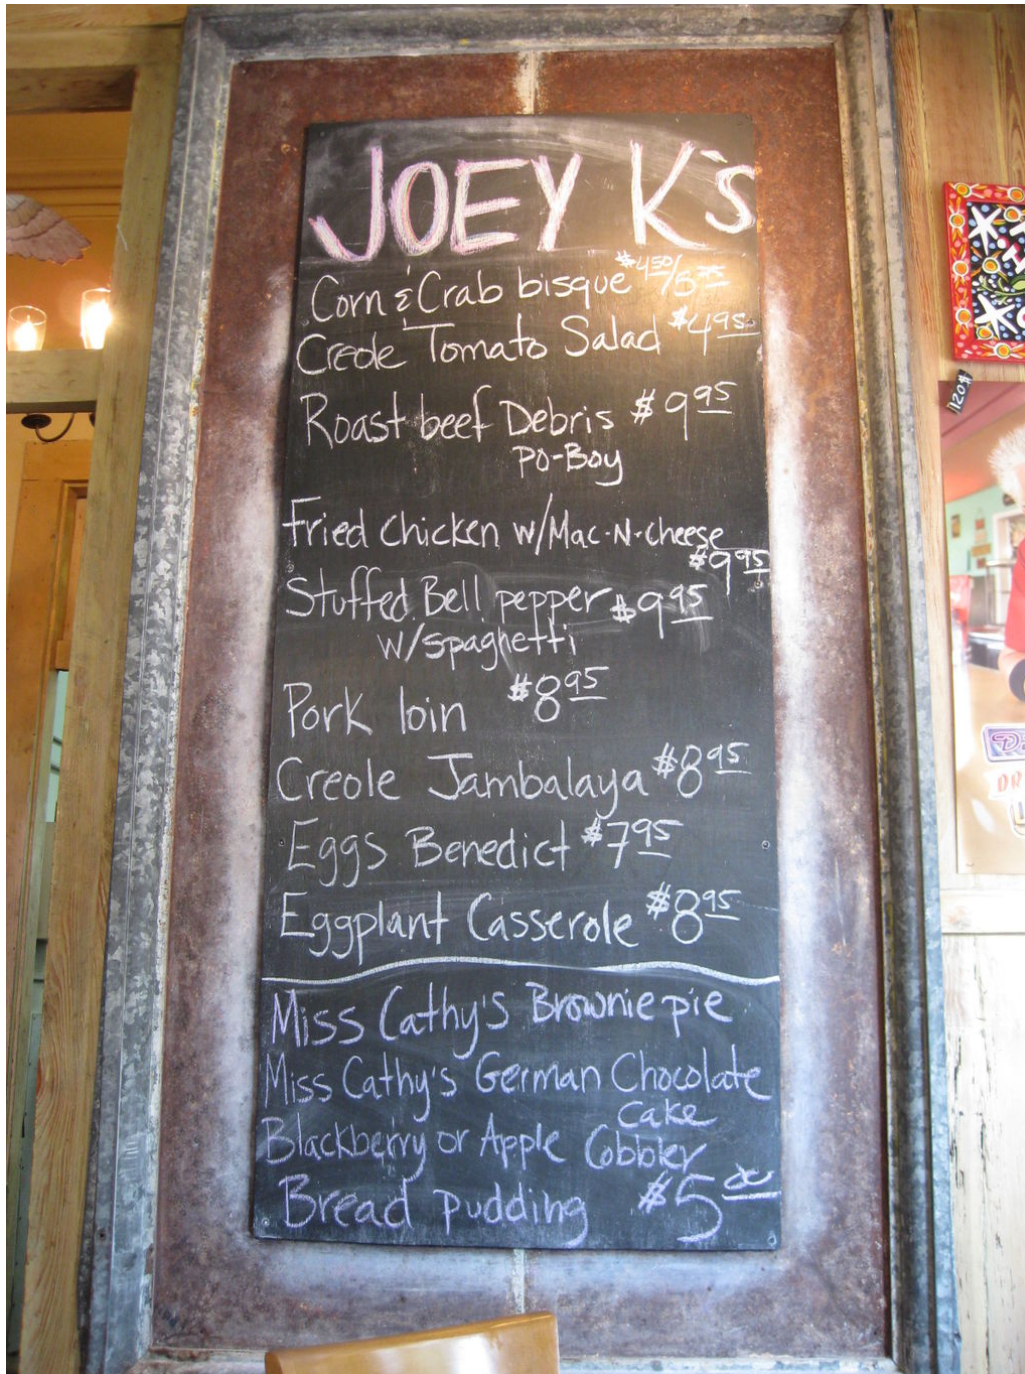 JOEY K's
Corn & Crab bisque $4.50/5.25
Creole Tomato Salad $4.95
Roast beef Debris $9.95
PO-BOY
Fried chicken w/Mac-N-cheese
$9.95
Stuffed Bell pepper $9.95
w/spaghetti
Pork loin $8.95
Creole Jambalaya $8.95
Eggs Benedict $7.95
Eggplant Casserole $8.95
Miss Cathy's Brownie pie
Miss Cathy's German Chocolate
Cake
Blackberry or Apple Cobbler
Bread pudding $5.00
120$